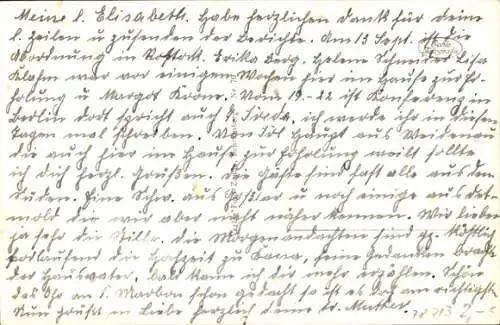 Meine l. Elisabeth. Habe herzlichen Dank für deine
l. Zeilen u. zusenden der Berichte. Am 13 Sept. ist die
Abordnung in Rostock. Erika Berg. Helene Schneider Lisa
Klahm war vor einigen Wochen hier im Hause zur Er-
holung u. Margot Krone. Vom 19.-22 ist Konferenz in
Berlin dort spricht auch Br. ich werde ihr in diesen
Tagen mal schreiben. Von Haupt aus Weidenau
die auch hier im Hause zur Erholung weilt sollte
ich dich herzl. Grüßen. Die Gäste sind fast alle aus dem
Süden. Eine Schw. aus Goslar u noch einige aus Det-
mold die wir aber nicht näher kennen. Wir lieben
ja sehr die Stille. Die Morgenandachten sind ja köstlich
fortlaufend die Hochzeit zu Kana, feine Gedanken bracht
der Hausvater, bald kann ich dir mehr erzählen. Schön
das Ihr an l. schon gedacht so ist es doch am richtigsten
Nun grüßt in Liebe herzlich deine tr. Mutter.
78713 2,-